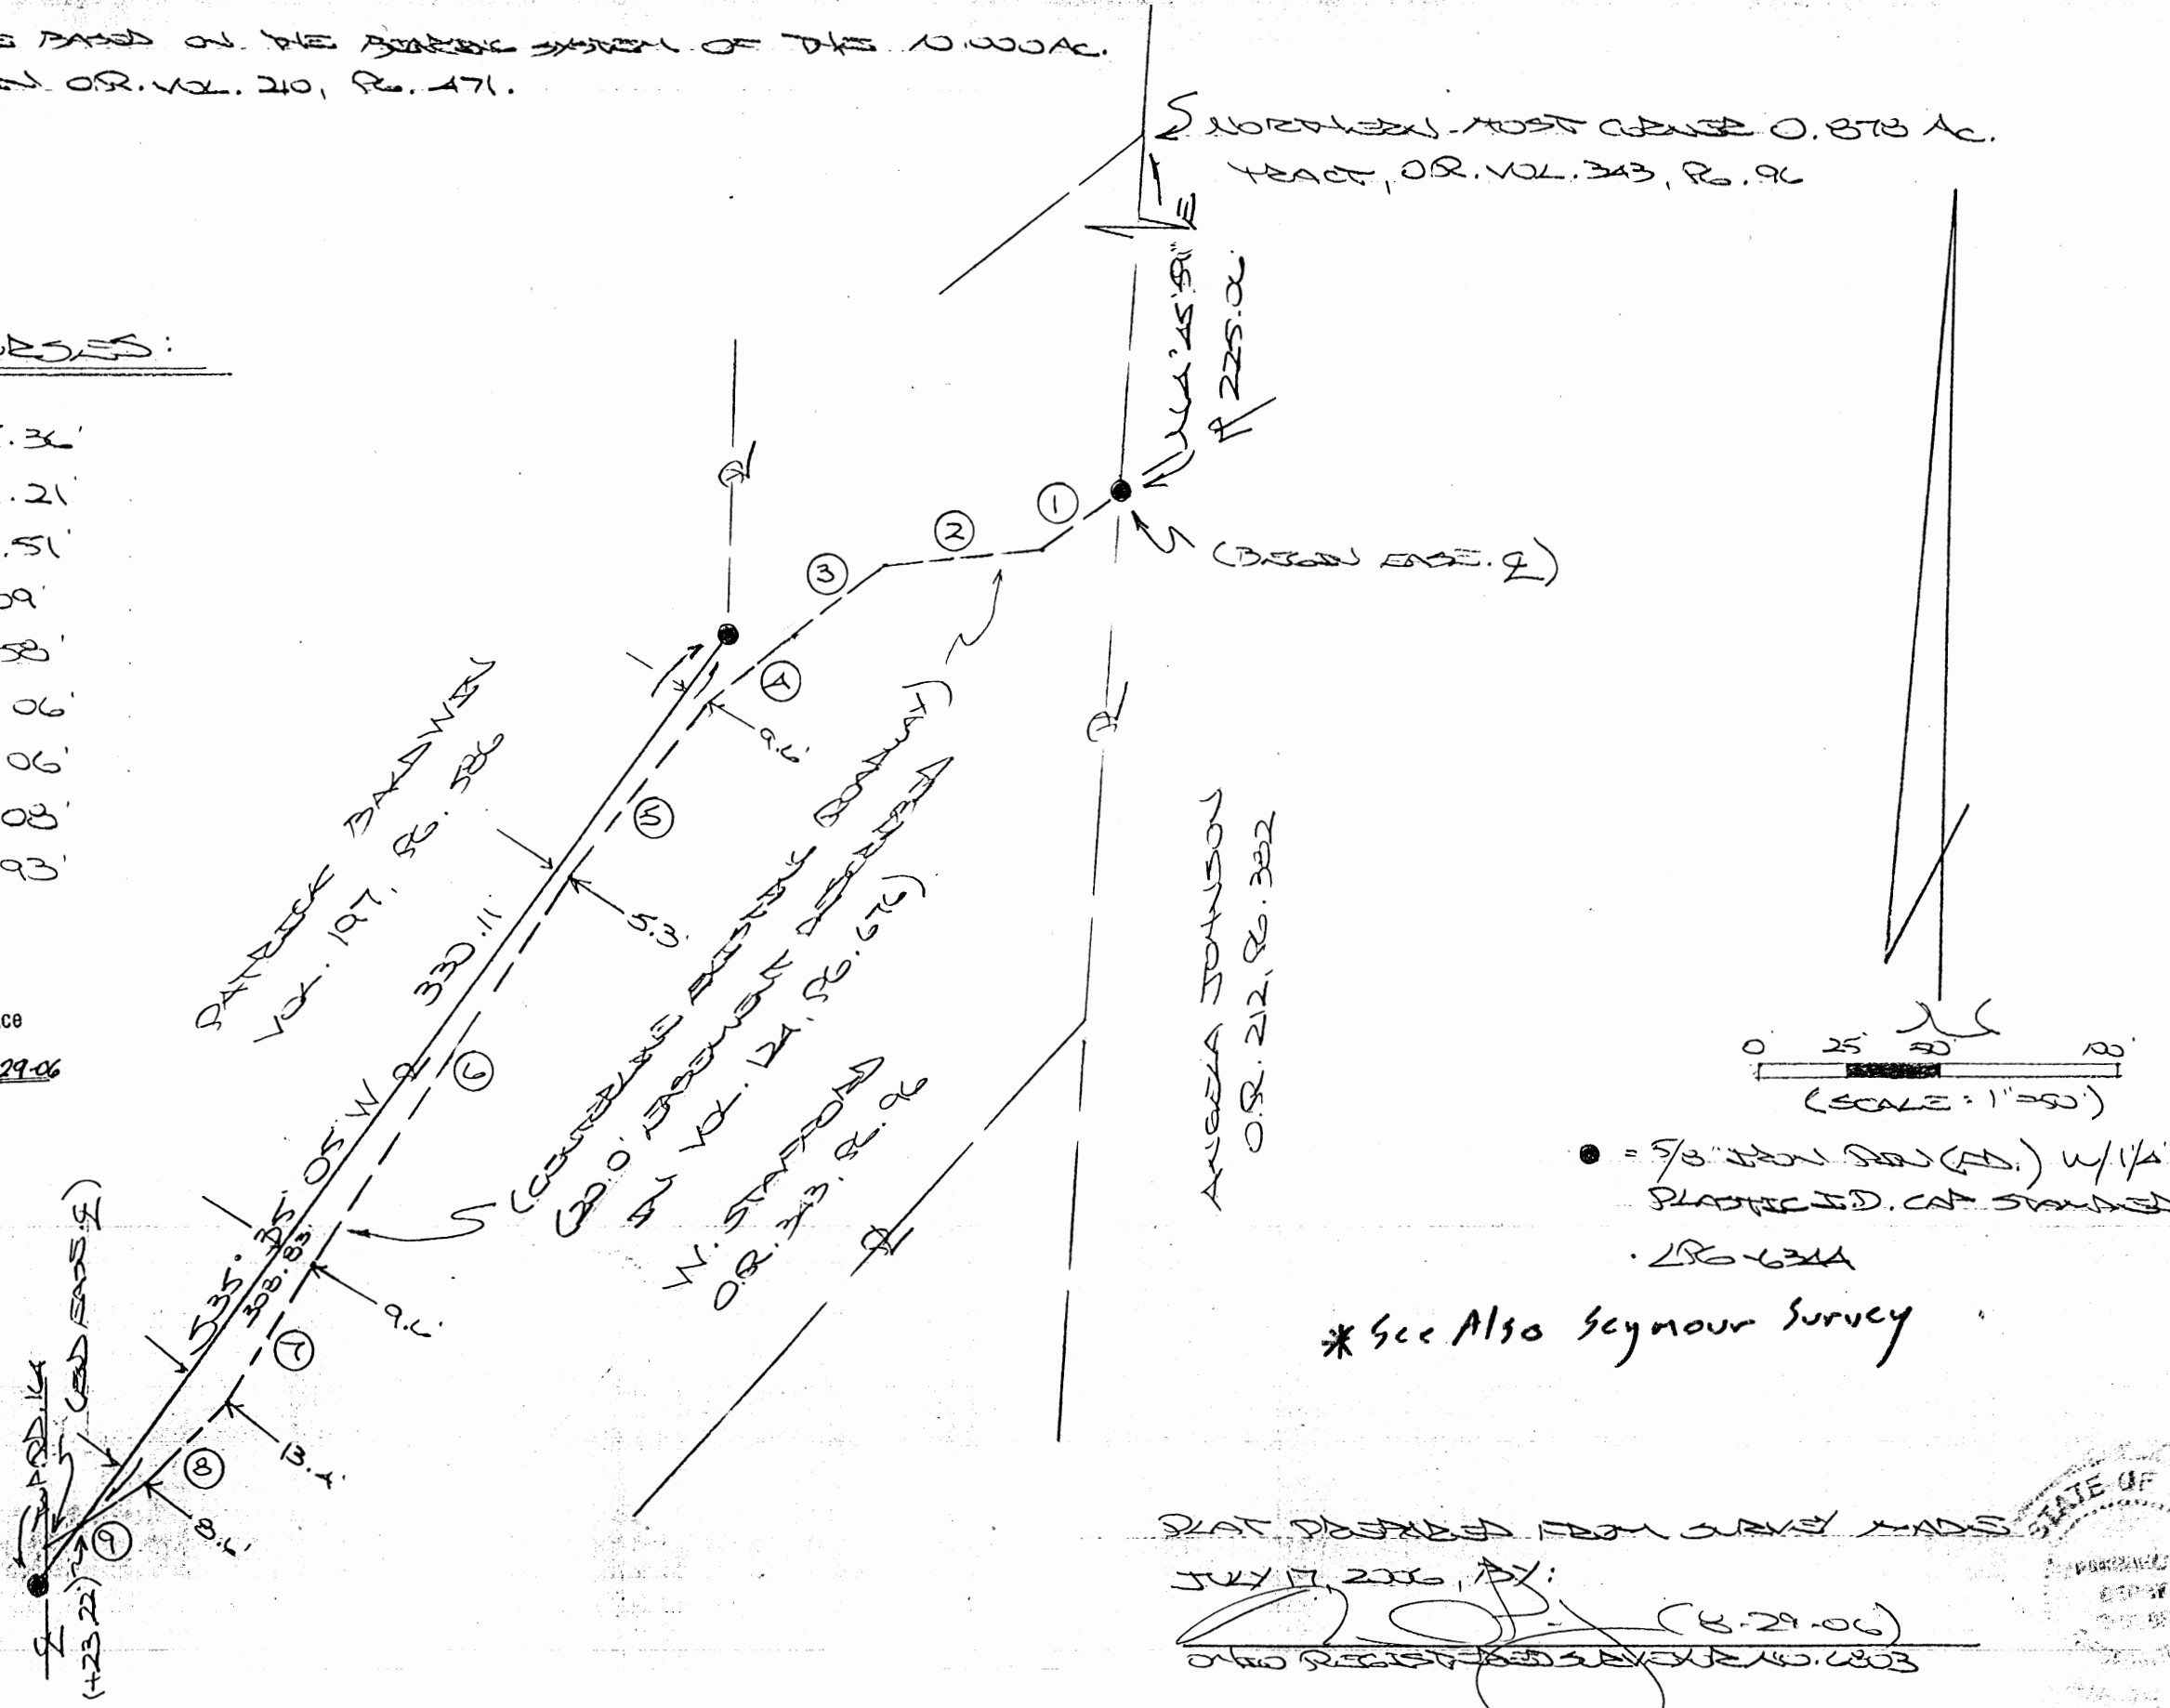 BASED ON THE BEARING SYSTEM OF THE 10.000 AC.
O.R. VOL. 210, PG. 471.
NORTHERN-MOST CORNER 0.878 AC.
TRACT, O.R. VOL. 343, PG. 96
225.06'
.36'
.21'
.51'
09'
58'
06'
06'
08'
93'
1
2
3
4
5
6
7
8
9
(BEGIN EASE. ℄)
9.6'
5.3'
9.6'
13.4'
8.6'
PATRICK BALDWIN
VOL. 197, PG. 586
330.11'
S 35° 35' 05" W
308.83'
(CENTERLINE EXISTING ROADWAY)
(30.0' EASEMENT DESCRIBED
IN VOL. 124, PG. 676)
W. STANFORD
O.R. 343, PG. 96
ANGELA JOHNSON
O.R. 212, PG. 332
(END EASE. ℄)
TWP. RD. 14
℄
(+23.22')
29-06
0 25' 50' 100'
(SCALE: 1"=50')
● = 5/8" IRON PIN (FD.) W/ 1 1/4"
PLASTIC I.D. CAP STAMPED
* See Also Seymour Survey
PLAT PREPARED FROM SURVEY MADE
JULY 17, 2006, BY:
(8-29-06)
OHIO REGISTERED SURVEYOR NO. 6803
STATE OF